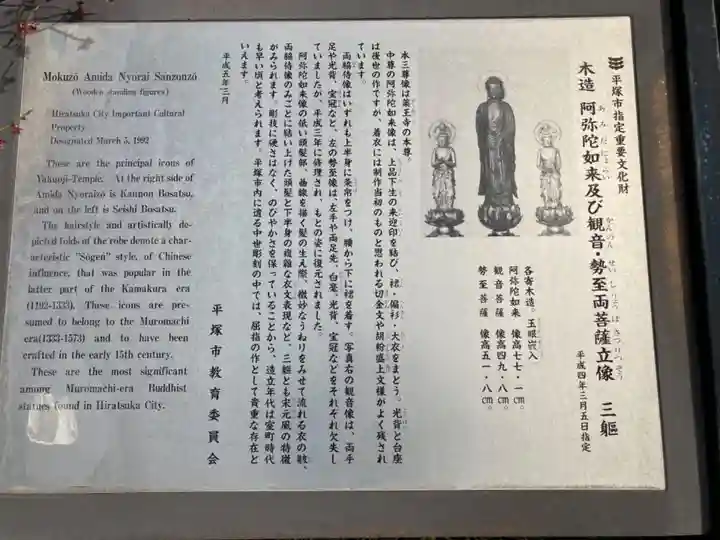 平塚市指定重要文化財
木造 阿弥陀如来及び観音・勢至両菩薩立像 三軀
あみだにょらい かんのん せいしりょうぼさつりつぞう
平成四年三月五日指定
各寄木造。玉眼嵌入
阿弥陀如来 像高七七・一㎝。
観音菩薩 像高四九・八㎝。
勢至菩薩 像高五一・八㎝。
本三尊像は薬王寺の本尊。
中尊の阿弥陀如来像は、上品下生の来迎印を結び、裙・偏衫・大衣をまとう。光背と台座
は後世の作ですが、着衣には制作当初のものと思われる切金文や胡粉盛上文様がよく残され
ています。
両脇侍像はいずれも上半身に条帛をつけ、腰から下に裙を着す。写真右の観音像は、両手
足や光背、宝冠など、左の勢至像は左手や両足先、白毫、光背、宝冠などをそれぞれ欠失し
ていましたが、平成三年に修理され、もとの姿に復元されました。
阿弥陀如来像の低い頭髪部、曲線を描く髪の生え際、微妙なうねりをみせて流れる衣の皺、
両脇侍像のみごとに結い上げた頭髪と下半身の複雑な衣文表現など、三軀とも宋元風の特徴
がみられます。彫技に硬さはなく、のびやかさを保っていることから、造立年代は室町時代
も早い頃と考えられます。平塚市内に遺る中世彫刻の中では、屈指の作として貴重な存在と
いえます。
平成五年三月
平塚市教育委員会
Mokuzō Amida Nyorai Sanzonzō
(Wooden standing figures)
Hiratsuka City Important Cultural
Property
Designated March 5, 1992
These are the principal icons of
Yakuoji-Temple. At the right side of
Amida Nyoraizō is Kannon Bosatsu,
and on the left is Seishi Bosatsu.
The hairstyle and artistically de-
picted folds of the robe denote a char-
acteristic "Sōgen" style, of Chinese
influence, that was popular in the
latter part of the Kamakura era
(1192-1333). These icons are pre-
sumed to belong to the Muromachi
era(1333-1573) and to have been
crafted in the early 15th century.
These are the most significant
among Muromachi-era Buddhist
statues found in Hiratsuka City.